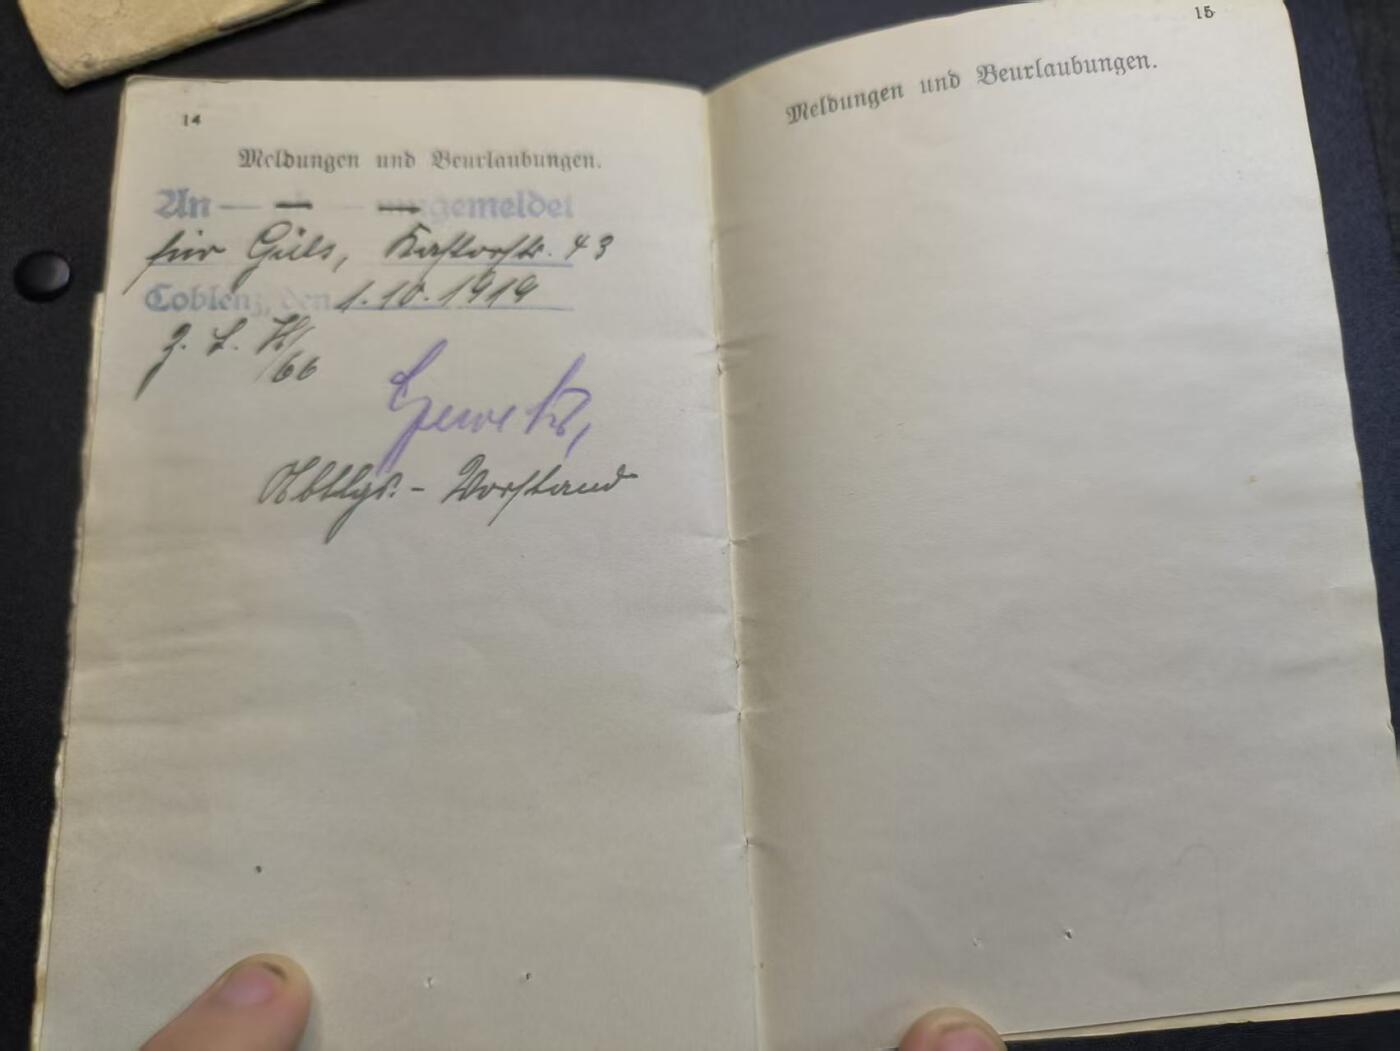 14
Meldungen und Beurlaubungen.
An — ab — umgemeldet
für Güls, Kastorstr. 43
Coblenz, den 1.10.1919
z. L. H/66
Abtlgs.-Vorstand
15
Meldungen und Beurlaubungen.